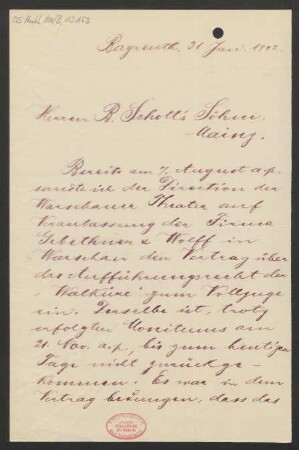 Bayreuth, 31 Jan. 1902.
Herren B. Schott's Söhne.
Mainz.
Bereits am 7. August a.p.
sandte ich der Direction der
Warschauer Theater auf
Veranlassung der Firma
Gebethner & Wolff in
Warschau den Vertrag über
das Aufführungsrecht der
"Walküre" zum Vollzuge
ein. Derselbe ist, trotz
erfolgten Monitums am
21. Nov. a.p., bis zum heutigen
Tage nicht zurückge-
kommen. Es war in dem
Vertrag bedungen, dass das